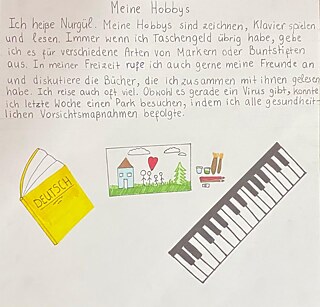 Meine Hobbys
Ich heiße Nurgül. Meine Hobbys sind zeichnen, Klavier spielen
und lesen. Immer wenn ich Taschengeld übrig habe, gebe
ich es für verschiedene Arten von Markern oder Buntstiften
aus. In meiner Freizeit rufe ich auch gerne meine Freunde an
und diskutiere die Bücher, die ich zusammen mit ihnen gelesen
habe. Ich reise auch oft viel. Obwohl es gerade ein Virus gibt, konnte
ich letzte Woche einen Park besuchen, indem ich alle gesundheit-
lichen Vorsichtsmaßnahmen befolgte.
DEUTSCH